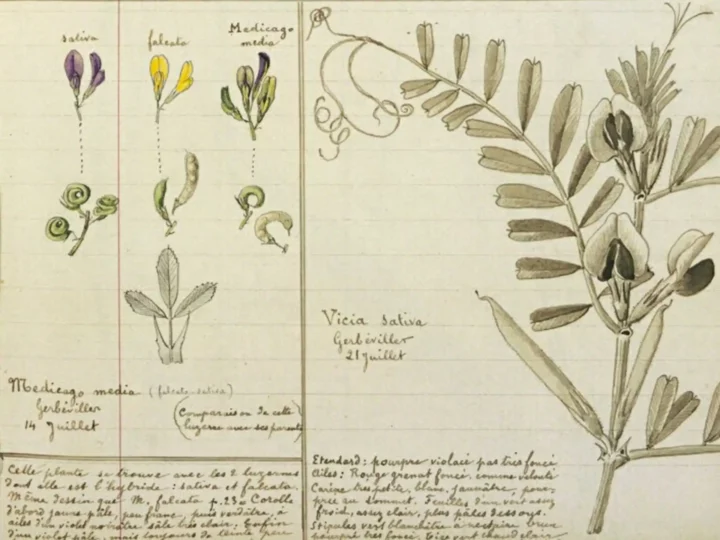 sativa
falcata
Medicago
media
Medicago media (falcata-sativa)
Gerbéviller
14 Juillet
(Comparaison de cette
luzerne avec ses parents
Cette plante se trouve avec les 2 luzernes
dont elle est l'hybride : sativa et falcata.
Même dessin que M. falcata p.230 Corolle
d'abord jaune pâle, peu franc, puis verdâtre, à
ailes d'un violet noirâtre sâle très clair. Enfin
d'un violet pâle, mais toujours de teinte
Vicia sativa
Gerbéviller
21 Juillet
Etendard : pourpre violacé pas très foncé.
Ailes : Rouge grenat foncé, comme velouté
Carène très petite, blanc, jaunâtre, pour-
pre au sommet. Feuilles d'un vert assez
froid, assez clair, plus pâles dessous.
Stipules vert blanchâtre à nectaire brun
pourpré très foncé. Tige vert chaud clair